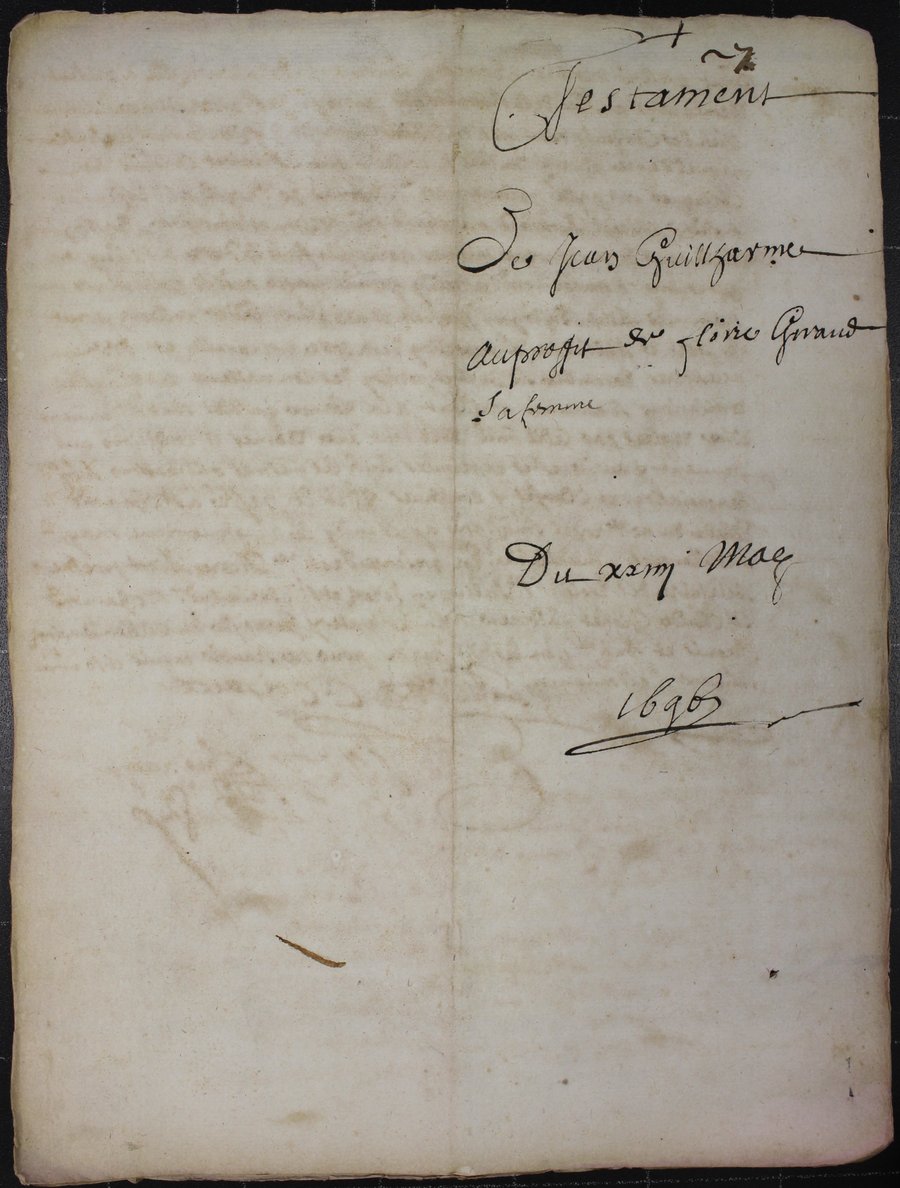 Testament
De Jean Guilharme
Au proffit de florie Giraud
Sa femme
Du xxiiij May
1696